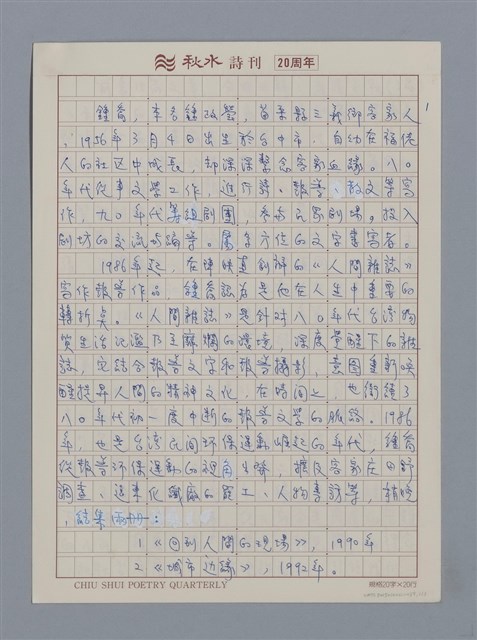 秋水詩刊 20周年
1
鍾喬，本名鍾政瑩，苗栗縣三義鄉客家人
，1956年3月4日出生於台中市，自幼在福佬
人的社区中成長，却深深繫念客家血緣。八〇
年代從事文學工作，進行詩、報導、散文等寫
作，九〇年代籌組剧團，參与民眾劇場。投入
劇坊的交流与論等。屬多方位的文字書寫者。
1986年起，在陳映真創辦的《人間雜誌》
寫作報導作品，鍾喬認為是他在人生中重要的
轉折奌。《人間雜誌》是針对八〇年代台湾物
質生活氾濫乃至靡爛的環境，深度覺醒下的雜
誌，它結合報導文字和報導攝影，意图重新喚
醒提昇人間的精神文化，在時間上，也銜續了
八〇年代初一度中断的報導文學的脈絡。1986
年，也是台湾民間环保運動崛起的年代，鍾喬
從報導环保運動的視角出發，擴及客家庄田野
調查、遠東化纖廠的罷工、人物專訪等，
，結集兩冊：
1 《回到人間的現場》，1990年
2 《城市边緣》，1992年。
CHIU SHUI POETRY QUARTERLY
稿紙20字×20行